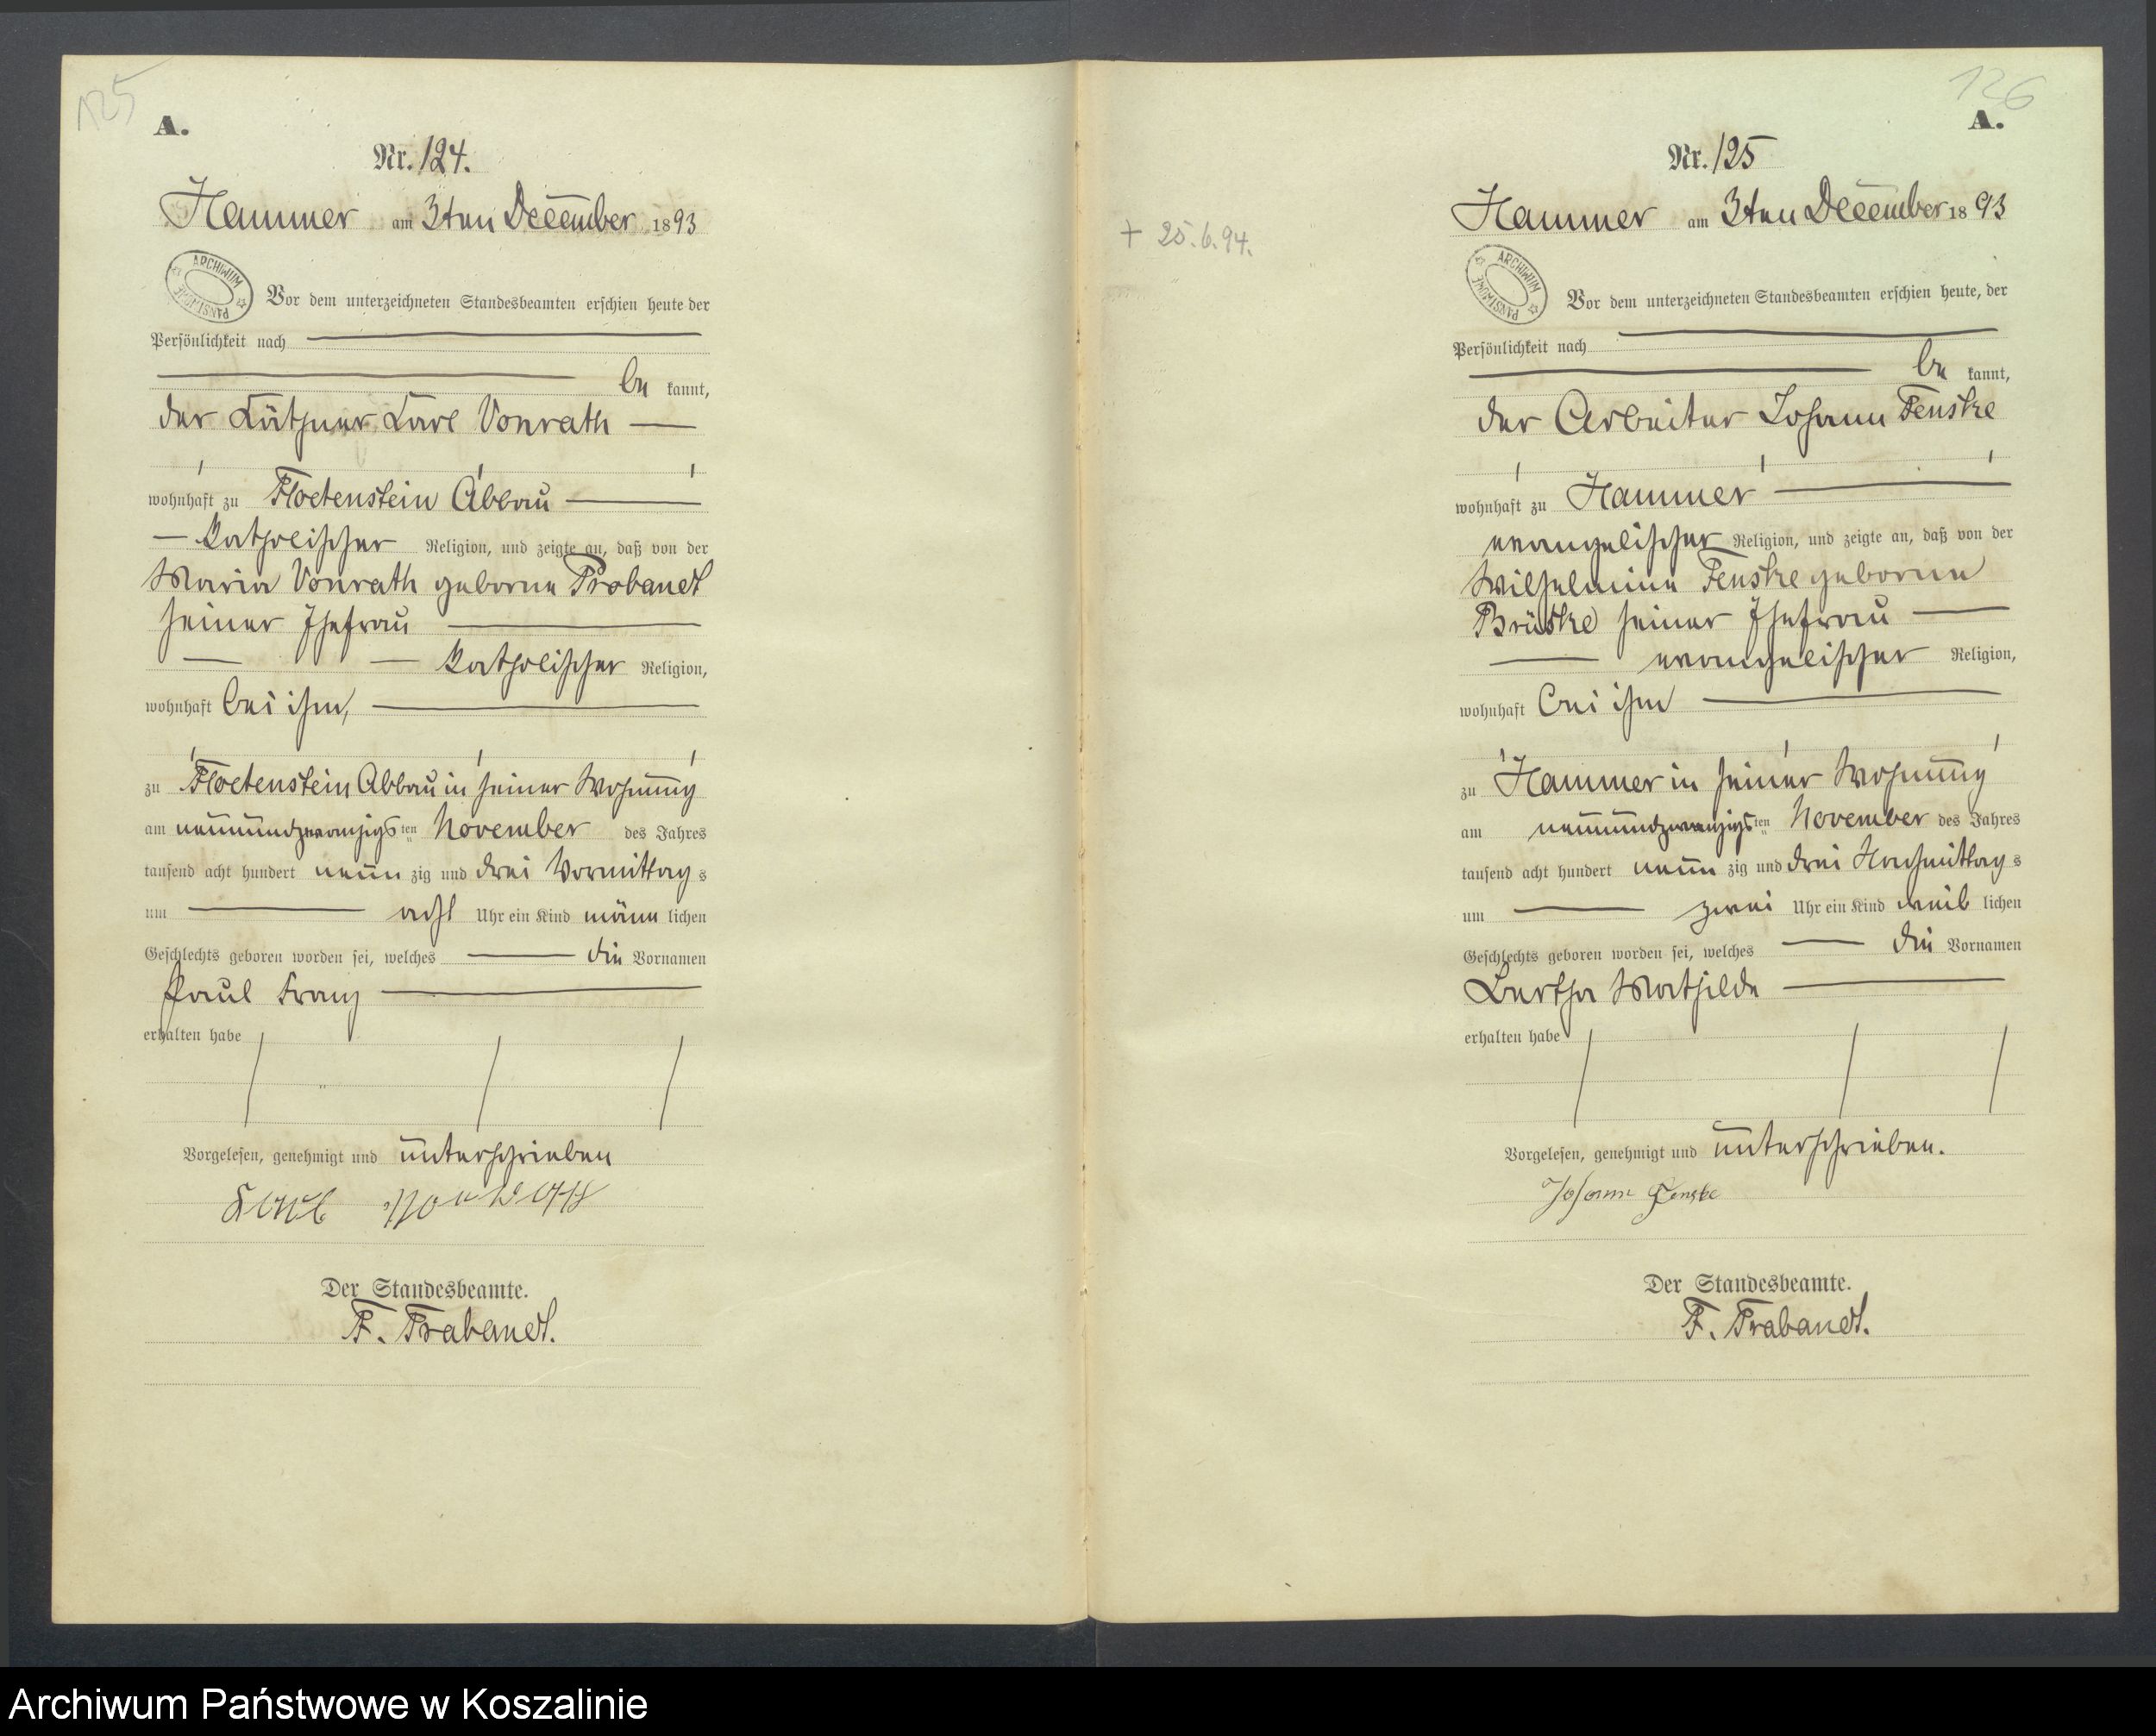 125
A.
Nr. 124.
Hammer am 3ten December 1893
ARCHIWUM PAŃSTWOWE
Vor dem unterzeichneten Standesbeamten erschien heute der
Persönlichkeit nach
be kannt,
der Käthner Carl Vonrath
wohnhaft zu Floetenstein Abbau
katholischer Religion, und zeigte an, daß von der
Maria Vonrath geborne Probandt
seiner Ehefrau
katholischer Religion,
wohnhaft bei ihm,
zu Floetenstein Abbau in seiner Wohnung
am neunundzwanzigsten November des Jahres
tausend acht hundert neun zig und drei Vormittag s
um acht Uhr ein Kind männ lichen
Geschlechts geboren worden sei, welches die Vornamen
Paul Franz
erhalten habe
Vorgelesen, genehmigt und unterschrieben
Carl Vonrath
Der Standesbeamte.
F. Trabandt.
126
A.
Nr. 125
+ 25.6.94.
Hammer am 3ten December 1893
ARCHIWUM PAŃSTWOWE
Vor dem unterzeichneten Standesbeamten erschien heute, der
Persönlichkeit nach
be kannt,
der Arbeiter Johann Fenske
wohnhaft zu Hammer
evangelischer Religion, und zeigte an, daß von der
Wilhelmine Fenske geborne
Brüske seiner Ehefrau
evangelischer Religion,
wohnhaft bei ihm
zu Hammer in seiner Wohnung
am neunundzwanzigsten November des Jahres
tausend acht hundert neun zig und drei Nachmittag s
um zwei Uhr ein Kind weib lichen
Geschlechts geboren worden sei, welches die Vornamen
Bertha Mathilde
erhalten habe
Vorgelesen, genehmigt und unterschrieben.
Johann Fenske
Der Standesbeamte.
F. Trabandt.
Archiwum Państwowe w Koszalinie